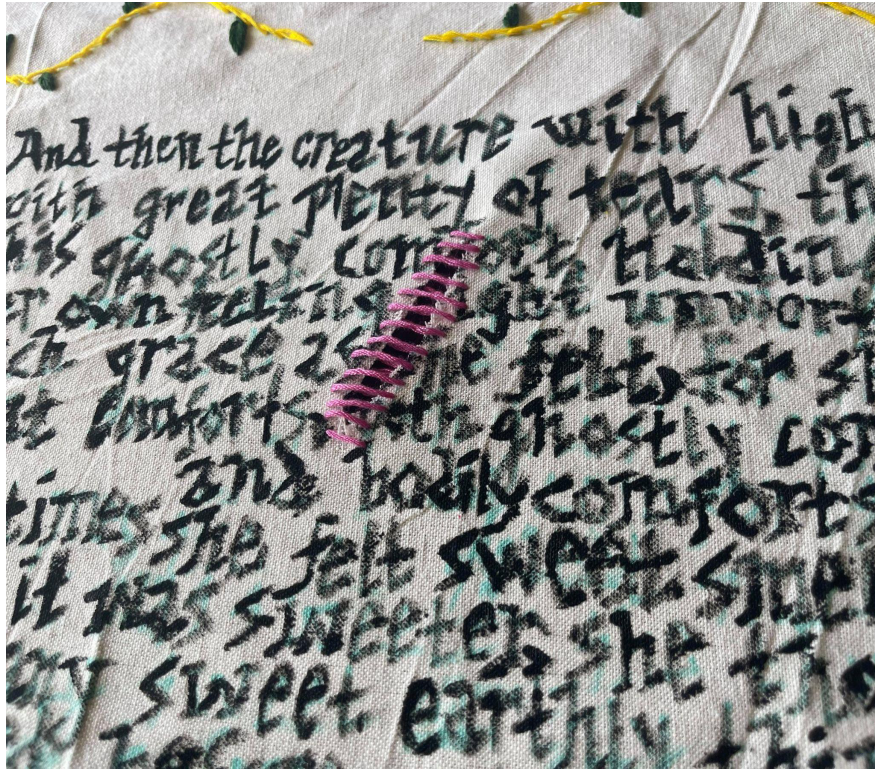 And then the creature with high
with great plenty of tears, th
his ghostly comfort. Holdin
r own feeling right unwor
ch grace as she felt, for s
t comforts both ghostly com
times and bodily comforts
she felt sweet sme
it was sweeter, she th
y sweet earthly thin